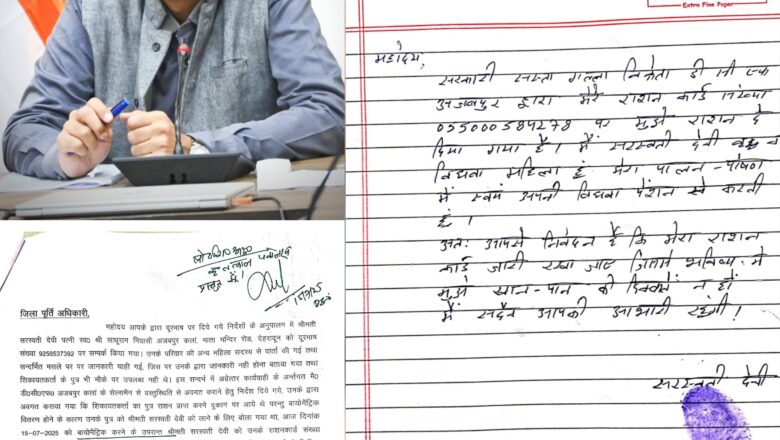 Extra Fine Paper
महोदय,
सरकारी सस्ता गल्ला विक्रेता डी सी एफ
अजबपुर द्वारा मेरे राशन कार्ड संख्या
055000584278 पर मुझे राशन दे
दिया गया है। मैं सरस्वती देवी वृद्ध व
विधवा महिला हूं मेरा पालन-पोषण
में स्वयं अपनी विधवा पेंशन से करती
हूं।
अतः आपसे निवेदन है कि मेरा राशन
कार्ड जारी रखा जाए जिससे भविष्य में
मुझे खान-पान की दिक्कतें न हों
मैं सदैव आपकी आभारी रहूंगी।
सरस्वती देवी
जिला पूर्ति अधिकारी,
महोदय आपके द्वारा दूरभाष पर दिये गये निर्देशों के अनुपालन में श्रीमती
सरस्वती देवी पत्नी स्व0 श्री साधुराम निवासी अजबपुर कलां, माता मन्दिर रोड, देहरादून को दूरभाष
संख्या 9258537392 पर सम्पर्क किया गया। उनके परिवार की अन्य महिला सदस्य से वार्ता की गई तथा
सन्दर्भित मसले पर पर जानकारी चाही गई, जिस पर उनके द्वारा जानकारी नही होना बताया गया तथा
शिकायतकर्ता के पुत्र भी मौके पर उपलब्ध नही थे। इस सन्दर्भ में अग्रेत्तर कार्यवाही के अर्न्तगत मै0
डी0सी0एफ0 अजबपुर कलां के सेल्समैन से वस्तुस्थिति से अवगत कराने हेतु निर्देश दिये गये, उनके द्वारा
अवगत कराया गया कि शिकायतकर्ता का पुत्र राशन प्राप्त करने दुकान पर आये थे परन्तु बायोमैट्रिक
वितरण होने के कारण उनके पुत्र को श्रीमती सरस्वती देवी को लाने के लिए बोला गया था, आज दिनांक
15-07-2025 को बायोमैट्रिक करने के उपरान्त श्रीमती सरस्वती देवी को उनके राशनकार्ड संख्या